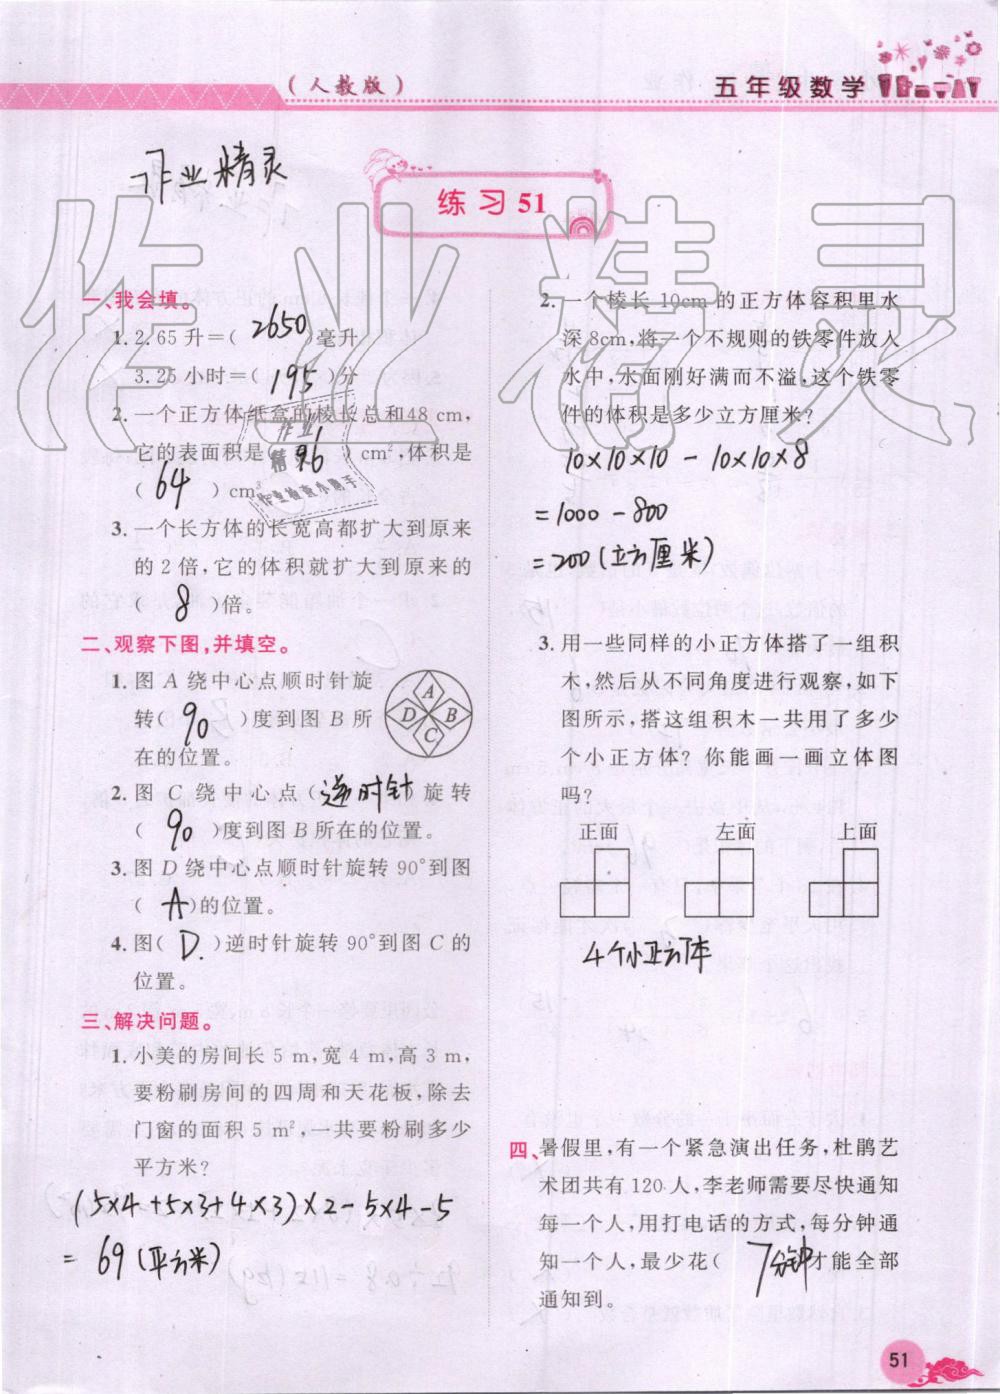 （人教版）
五年级数学
作业精灵
练习 51
作业精灵
一、我会填。
1. 2.65 升＝( 2650 )毫升
3.25 小时＝( 195 )分
2. 一个正方体纸盒的棱长总和48 cm，
它的表面积是( 96 ) cm²，体积是
( 64 ) cm³
3. 一个长方体的长宽高都扩大到原来
的 2 倍，它的体积就扩大到原来的
( 8 )倍。
二、观察下图，并填空。
1. 图 A 绕中心点顺时针旋
转( 90 )度到图 B 所
在的位置。
A
D B
C
2. 图 C 绕中心点( 逆时针 旋转
( 90 )度到图 B 所在的位置。
3. 图 D 绕中心点顺时针旋转 90°到图
( A )的位置。
4. 图( D )逆时针旋转 90°到图 C 的
位置。
三、解决问题。
1. 小美的房间长 5 m，宽 4 m，高 3 m，
要粉刷房间的四周和天花板，除去
门窗的面积 5 m²，一共要粉刷多少
平方米？
(5×4+5×3+4×3)×2-5×4-5
= 69(平方米)
2. 一个棱长 10cm 的正方体容积里水
深 8cm，将一个不规则的铁零件放入
水中，水面刚好满而不溢，这个铁零
件的体积是多少立方厘米？
10×10×10-10×10×8
=1000-800
=200(立方厘米)
3. 用一些同样的小正方体搭了一组积
木，然后从不同角度进行观察，如下
图所示，搭这组积木一共用了多少
个小正方体？你能画一画立体图
吗？
正面 左面 上面
4个小正方体
四、暑假里，有一个紧急演出任务，杜鹃艺
术团共有 120 人，李老师需要尽快通知
每一个人，用打电话的方式，每分钟通
知一个人，最少花( 7分钟 才能全部
通知到。
51